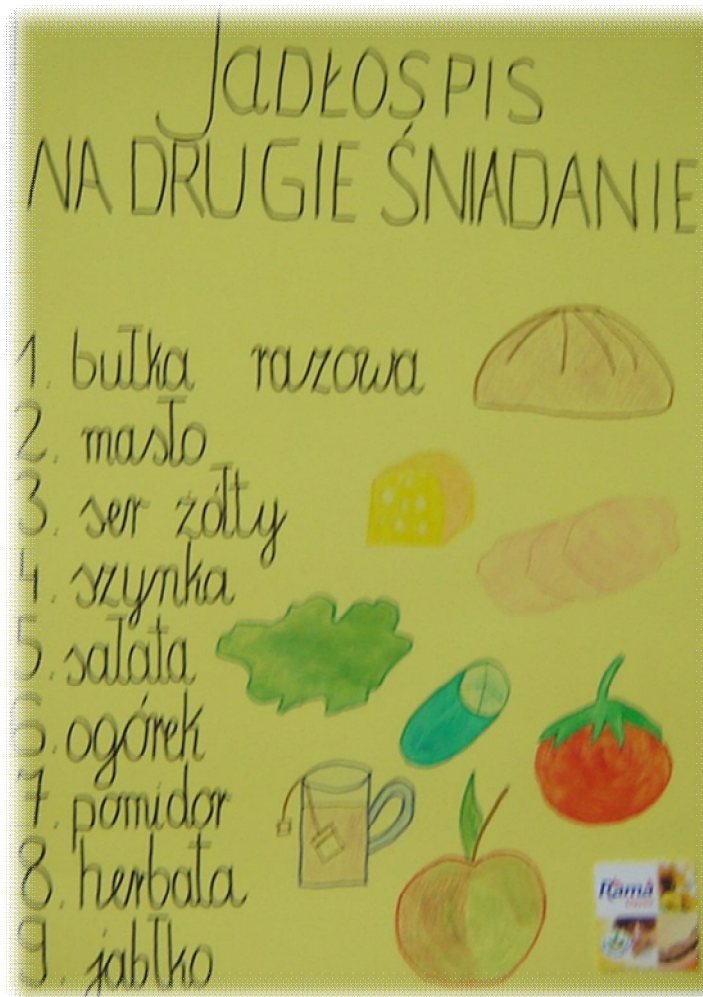 JADŁOSPIS
NA DRUGIE ŚNIADANIE
1. bułka razowa
2. masło
3. ser żółty
4. szynka
5. sałata
6. ogórek
7. pomidor
8. herbata
9. jabłko
Rama